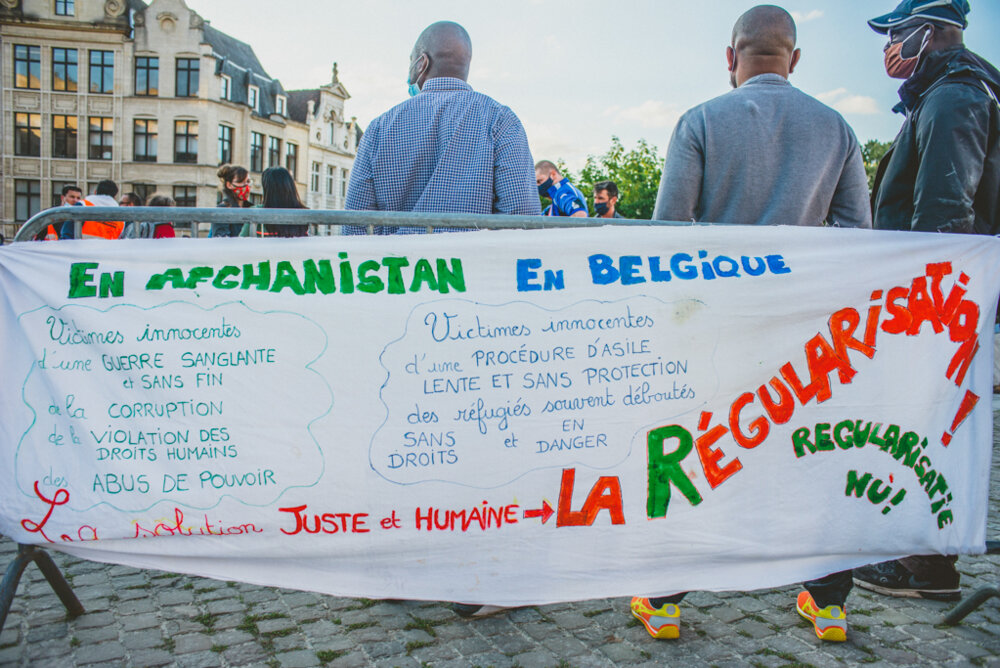 En AFGHANISTAN
Victimes innocentes
d'une GUERRE SANGLANTE
et SANS FIN
de la CORRUPTION
de la VIOLATION DES
DROITS HUMAINS
des ABUS DE POUVOIR
En BELGIQUE
Victimes innocentes
d'une PROCÉDURE D'ASILE
LENTE ET SANS PROTECTION
des réfugiés souvent déboutés
SANS DROITS et EN DANGER
La solution JUSTE et HUMAINE → LA RÉGULARISATION !
REGULARISATIE
NU!